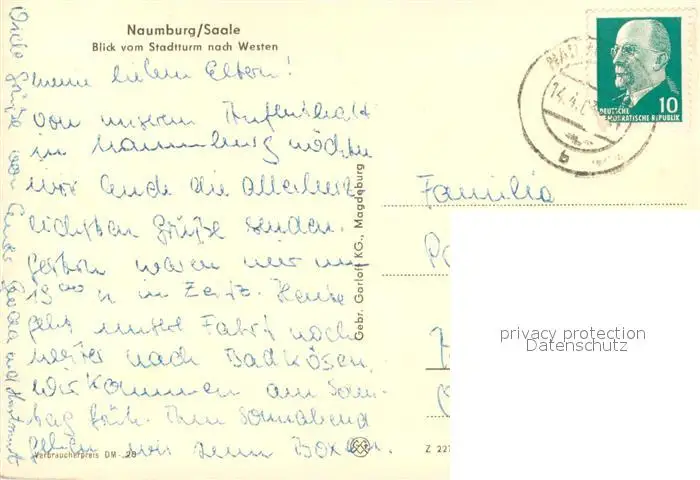 Naumburg/Saale
Blick vom Stadtturm nach Westen
Meine lieben Eltern!
Von unserem Aufenthalt
in Naumburg möchten
wir Euch die allerherz-
lichsten Grüße senden.
Gestern waren wir um
19⁰⁰ u in Zeitz. Heute
geht unsere Fahrt noch
weiter nach Bad Kösen.
Wir kommen am Sonn-
tag früh. Am Sonnabend
gehen wir zum Boxen.
Viele Grüße von Euren und Hartmut
Verbraucherpreis DM -.20
Gebr. Garloff KG., Magdeburg
Z 227
14.4.6
b
10
DEUTSCHE
DEMOKRATISCHE REPUBLIK
Familie
privacy protection
Datenschutz